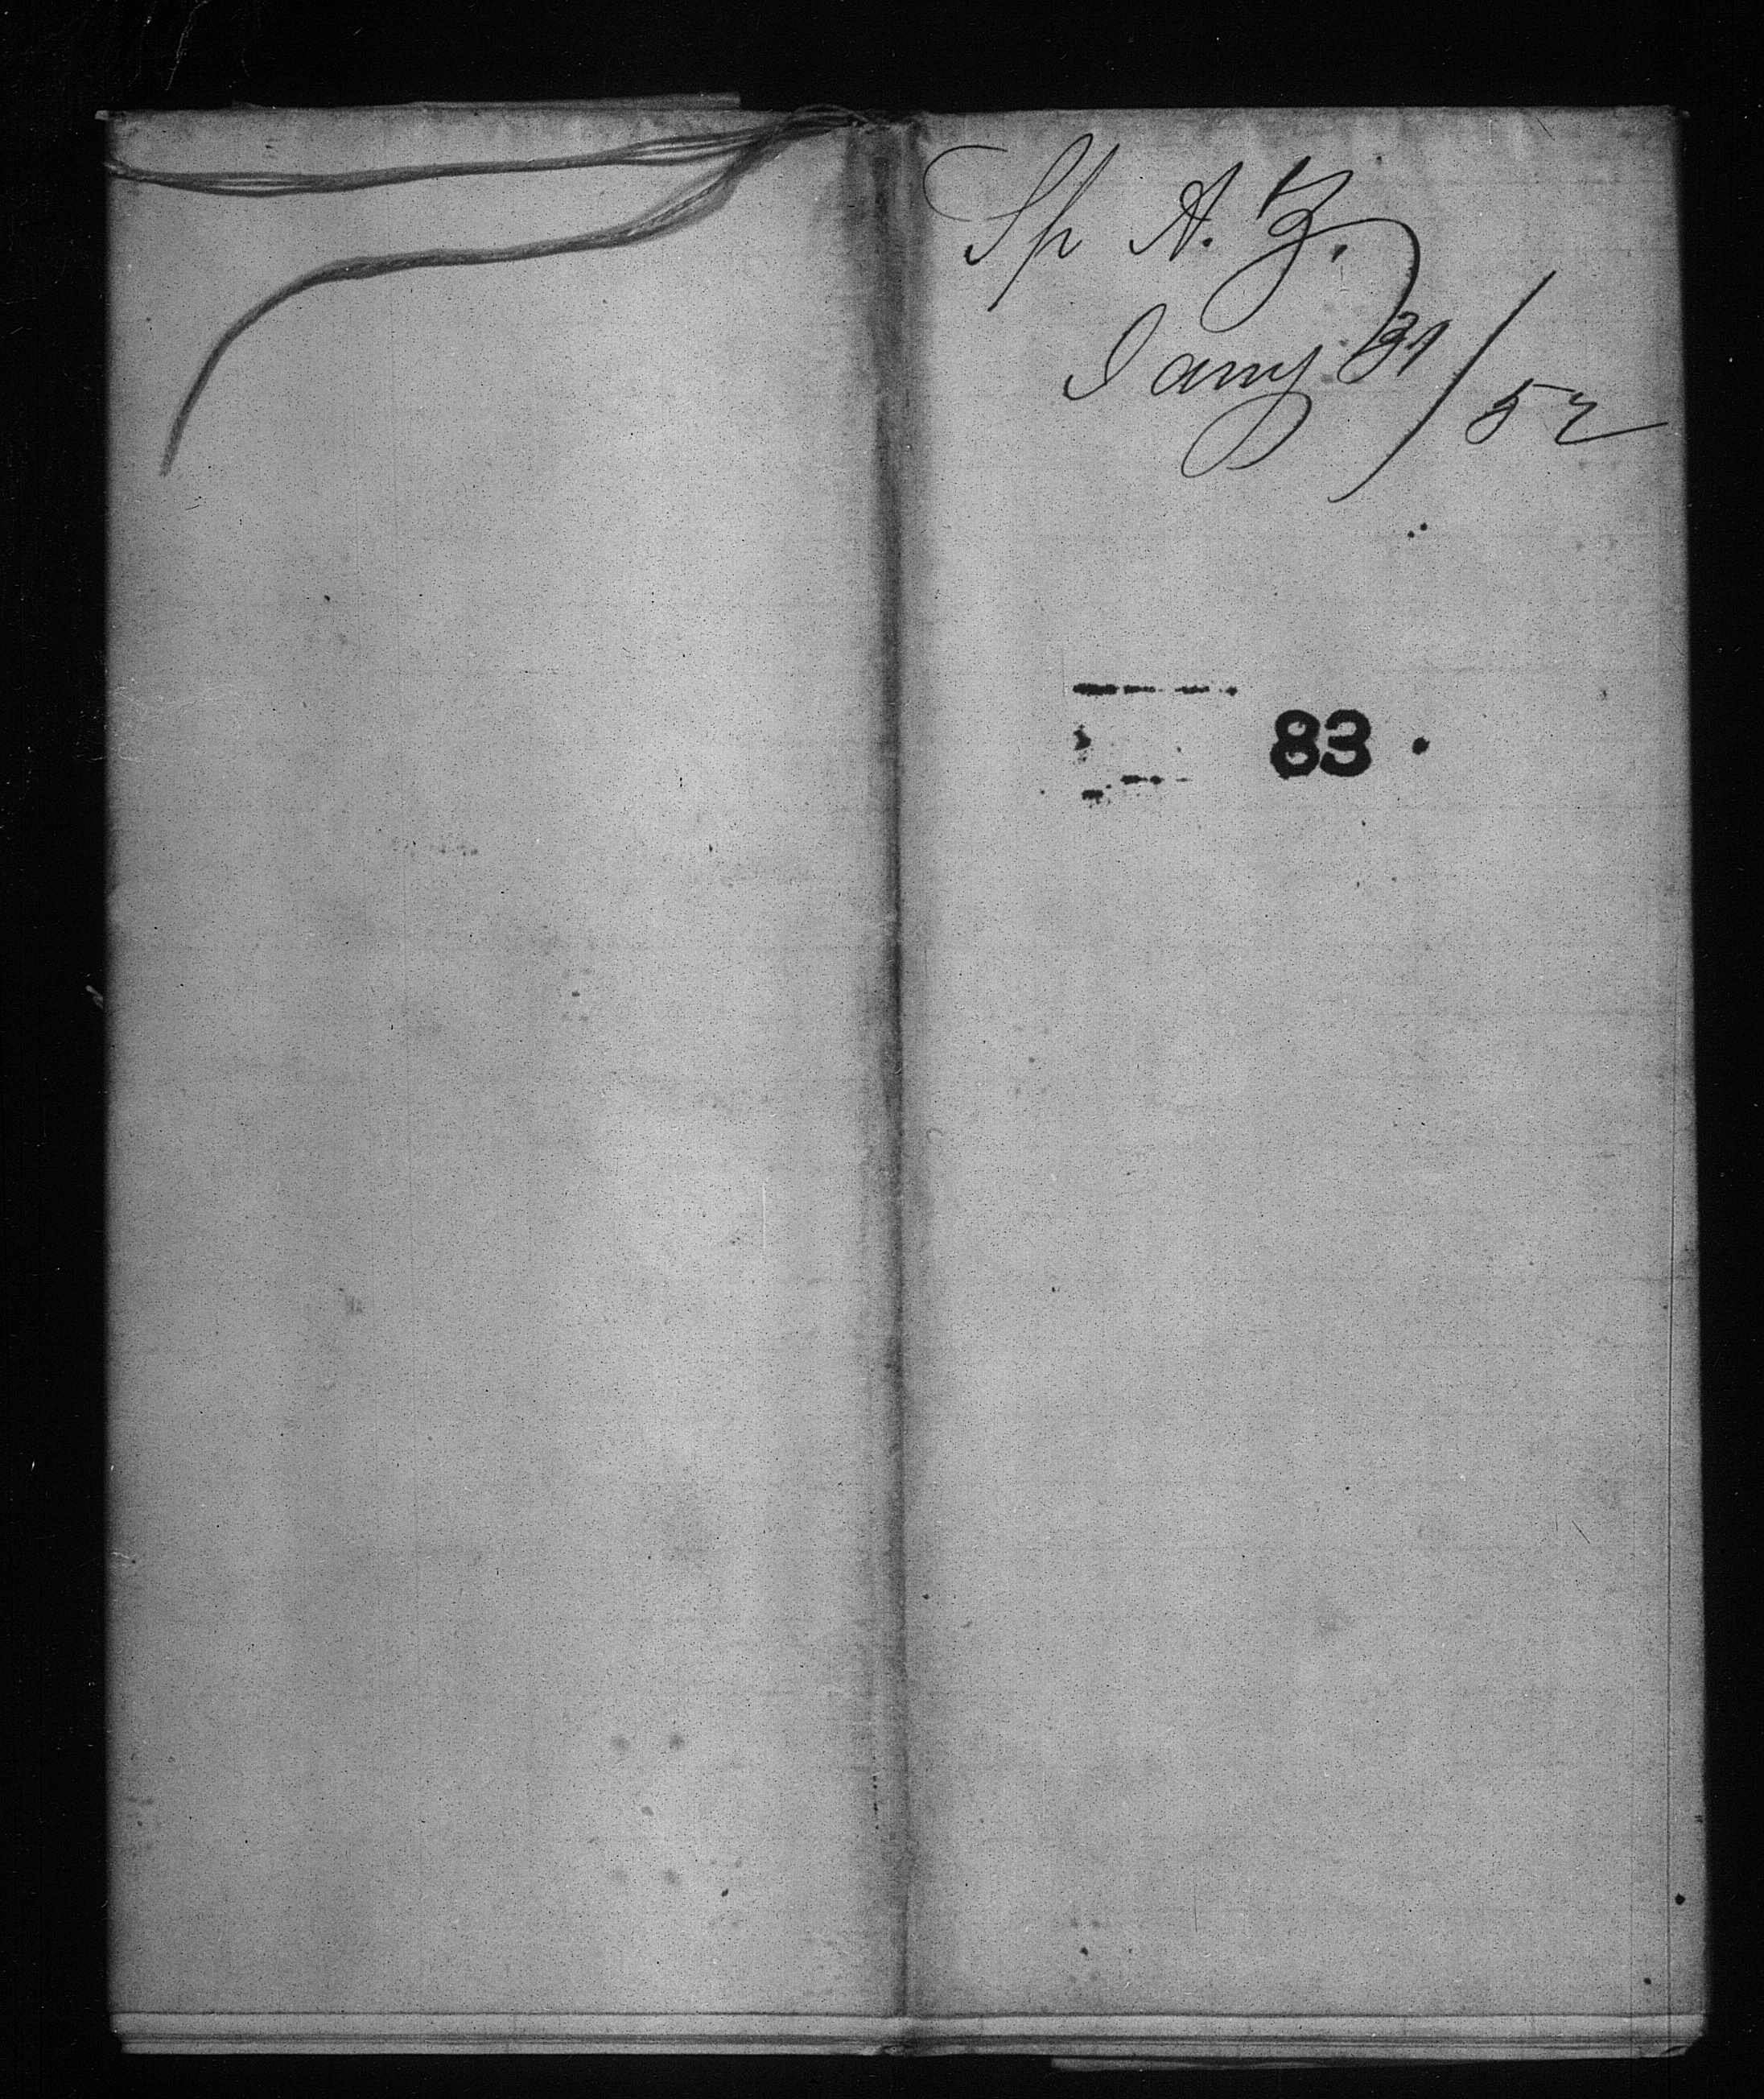 Sp A. B.
Jany 31/52
83